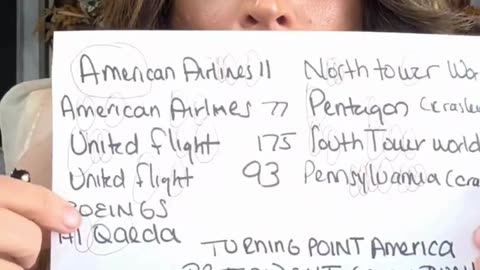 American Airlines 11 North tower Wor
American Airlines 77 Pentagon (crashe
United flight 175 South Tower world
United flight 93 Pennsylvania (cra
BOEINGS
Al Qaeda
TURNING POINT America